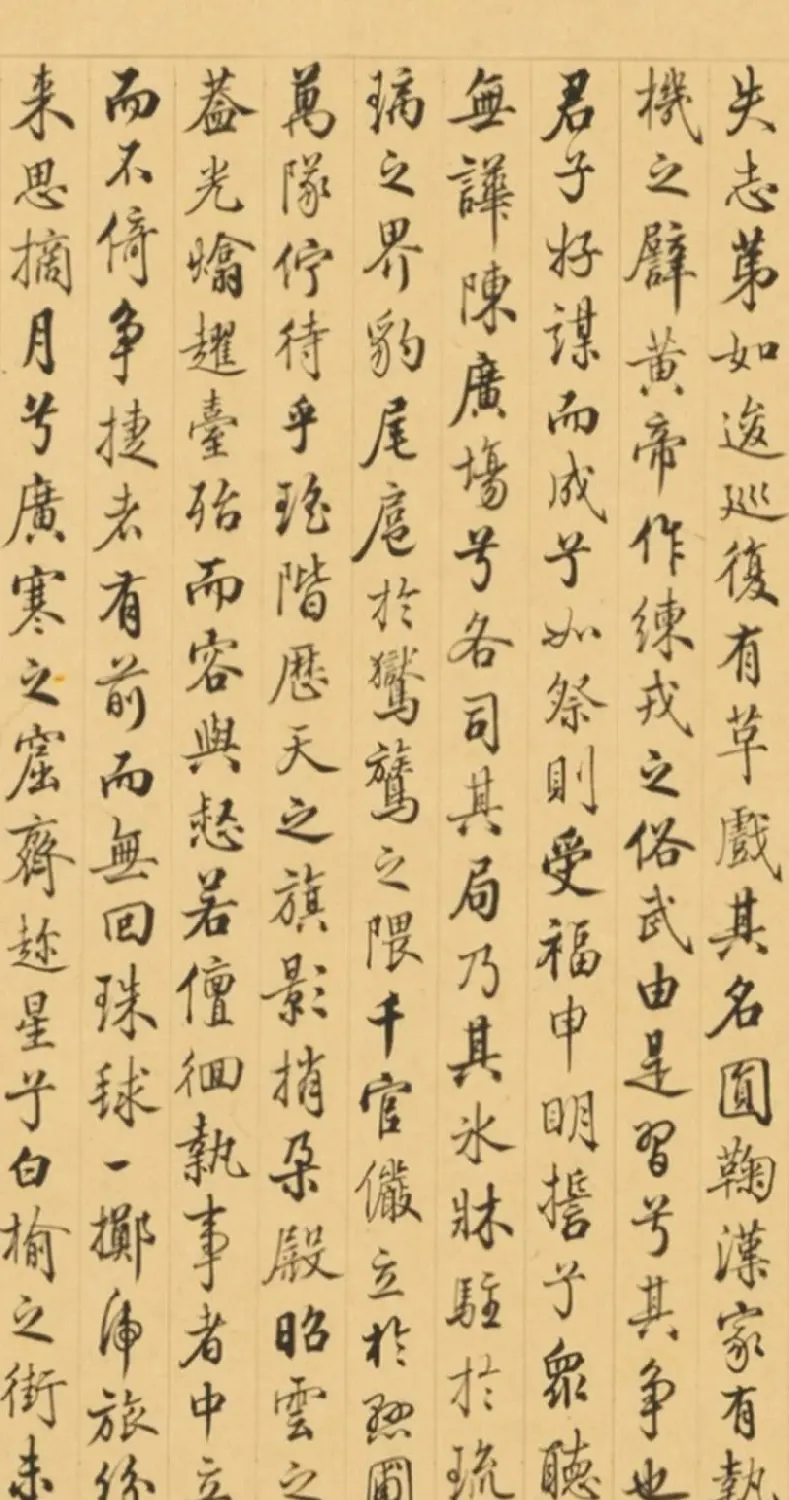 失志苐如逡巡復有草戲其名圓鞠漢家有執
機之躃黄帝作練戎之俗武由是習兮其争也
君子好謀而成兮如祭則受福申明誓兮眾聽
無譁陳廣塲兮各司其局乃其氷牀駐於琉
璃之界豹尾扈於鸑鷟之隈千官儼立於懸圃
萬隊佇待乎瑤階歷天之旗影捎朶殿昭雲之
葢光爚趯臺殆而容與愻若儃徊執事者中立
而不倚争捷者有前而無回珠球一擲虎旅紛
来思摘月兮廣寒之窟齊趂星兮白榆之街未